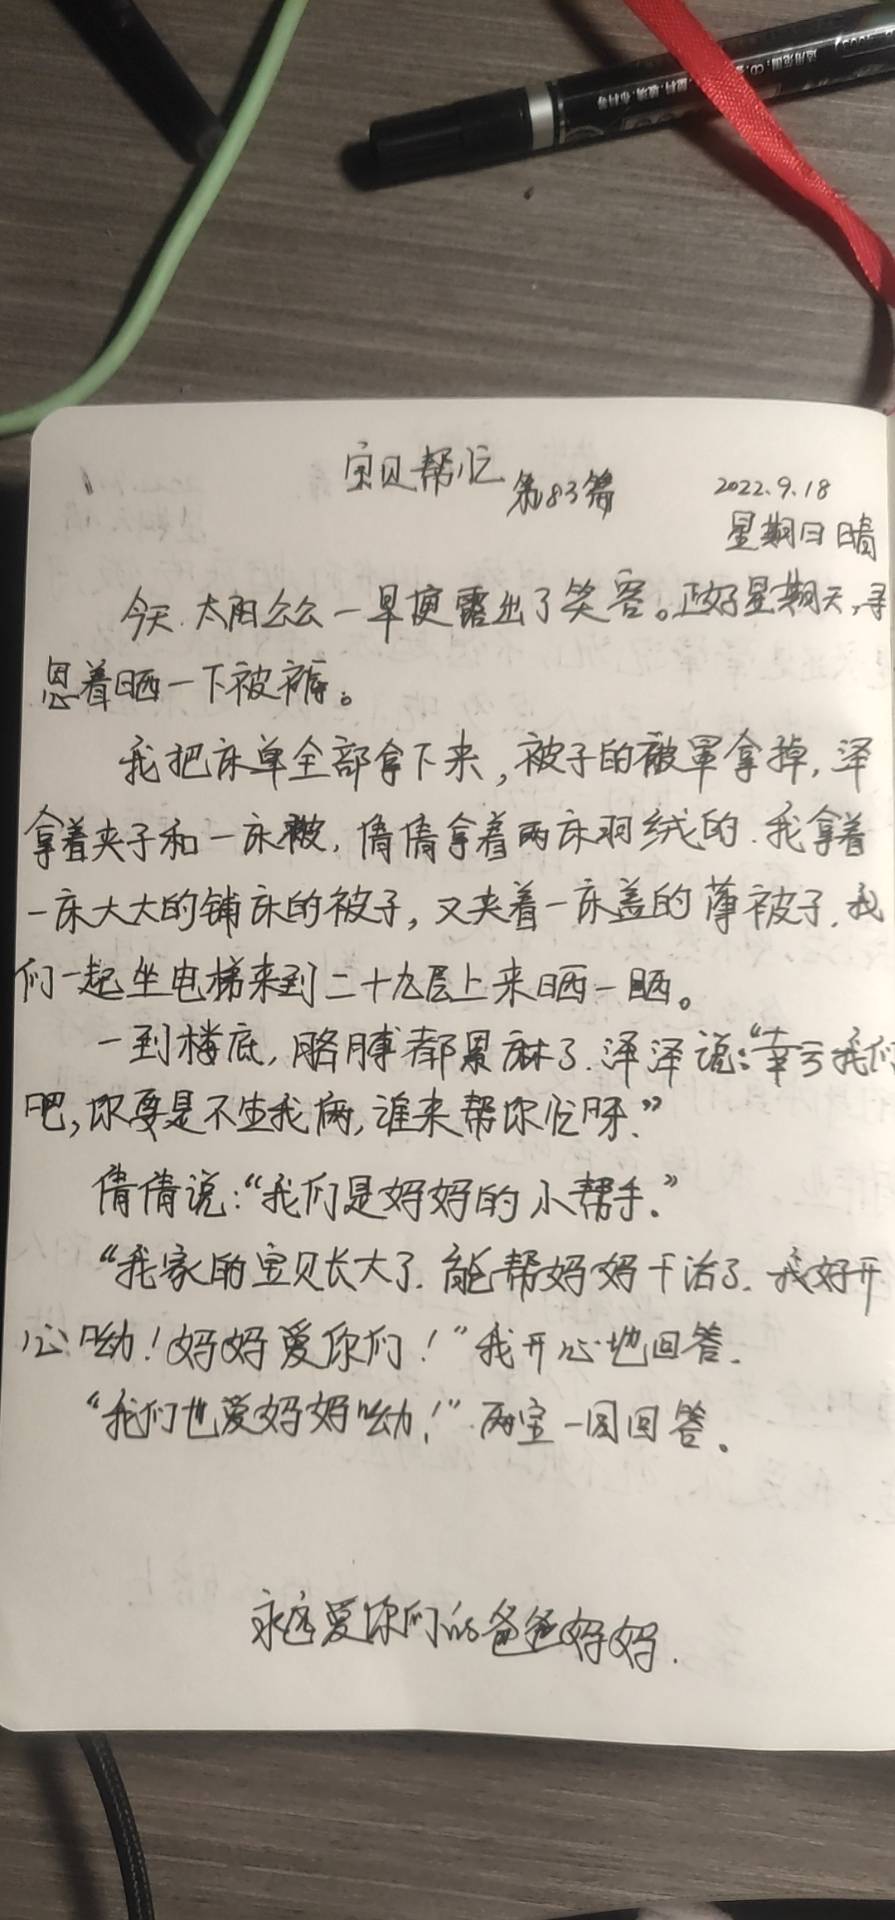 适用范围:CD,
塑料.玻璃.布料等
宝贝帮忙 第83篇
2022.9.18
星期日 晴
今天.太阳公公一早便露出了笑容。正好星期天,寻
思着晒一下被褥。
我把床单全部拿下来,被子的被罩拿掉,泽
拿着夹子和一床被,倩倩拿着两床羽绒的.我拿着
一床大大的铺床的被子,又夹着一床盖的薄被子.我
们一起坐电梯来到二十九层上来晒一晒。
一到楼底,胳膊都累麻了.泽泽说:“幸亏我们
吧,你要是不生我俩,谁来帮你忙呀.”
倩倩说:“我们是妈妈的小帮手.”
“我家的宝贝长大了.能帮妈妈干活了.我好开
心呦!妈妈爱你们!”我开心地回答.
“我们也爱妈妈呦!”两宝一同回答。
永远爱你们的爸爸妈妈.